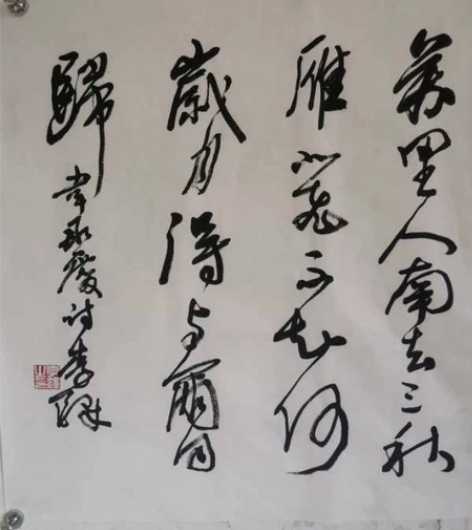 萬里人南去三秋
雁北飛不知何
歲月得与爾同
歸
韋承慶詩李